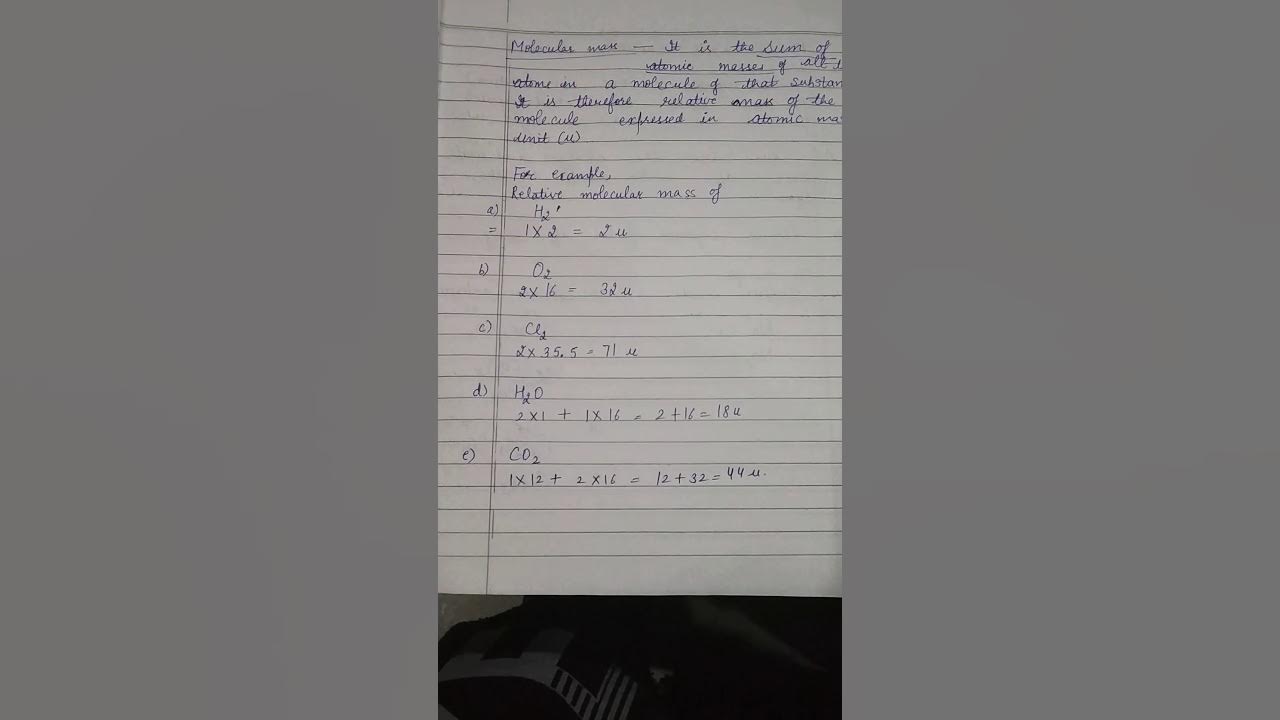 Molecular mass — It is the sum of
atomic masses of all
atoms in a molecule of that substan
It is therefore relative mass of the
molecule expressed in atomic ma
unit (u)
For example,
Relative molecular mass of
a) H₂
= 1 × 2 = 2 u
b) O₂
2 × 16 = 32 u
c) Cl₂
2 × 35.5 = 71 u
d) H₂O
2 × 1 + 1 × 16 = 2 + 16 = 18 u
e) CO₂
1 × 12 + 2 × 16 = 12 + 32 = 44 u.